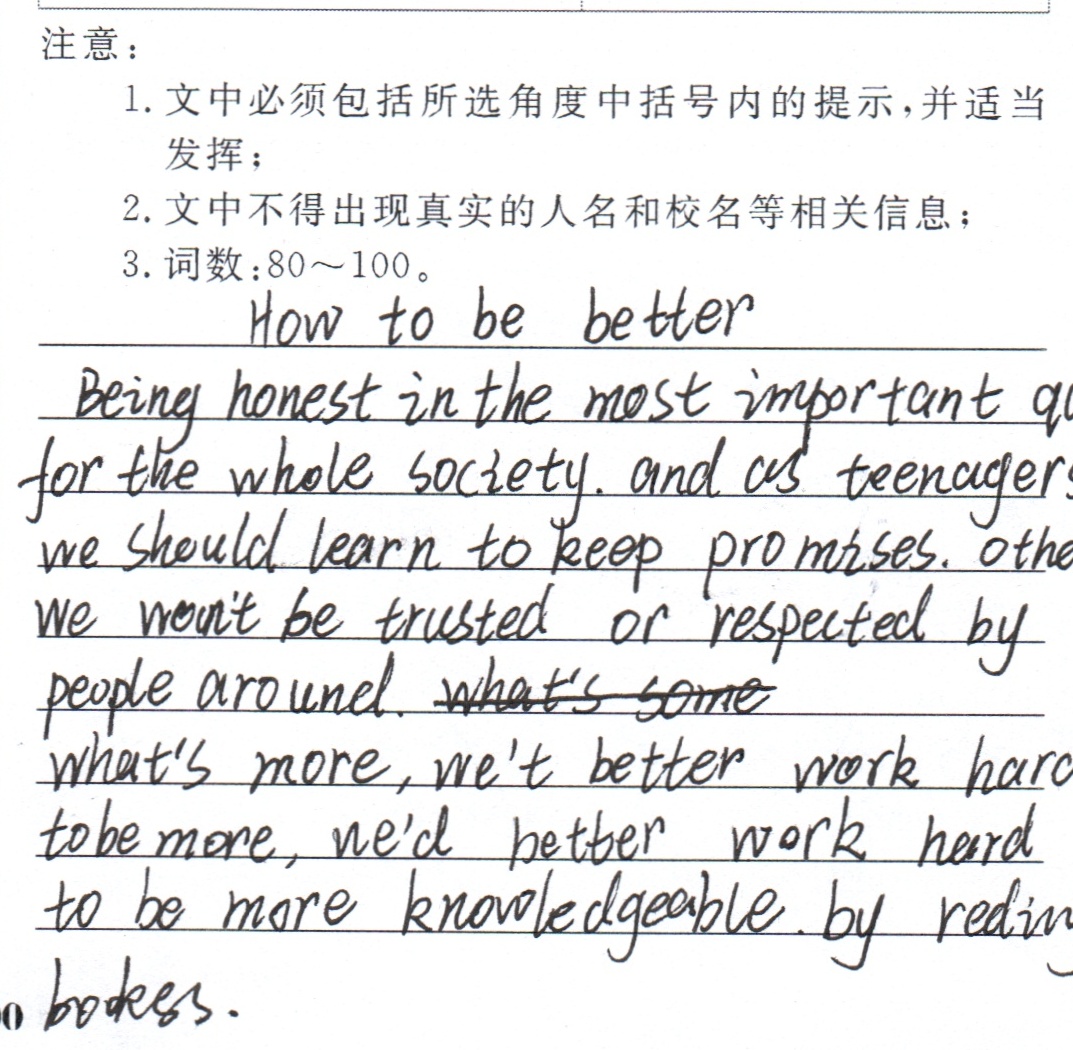 注意：
1. 文中必须包括所选角度中括号内的提示，并适当
发挥；
2. 文中不得出现真实的人名和校名等相关信息；
3. 词数：80～100。
How to be better
Being honest in the most important qu
for the whole society. and as teenagers
we should learn to keep promises. othe
we won't be trusted or respected by
people around. what's some
what's more, we't better work hard
to be more, we'd better work hard
to be more knowledgeable. by reding